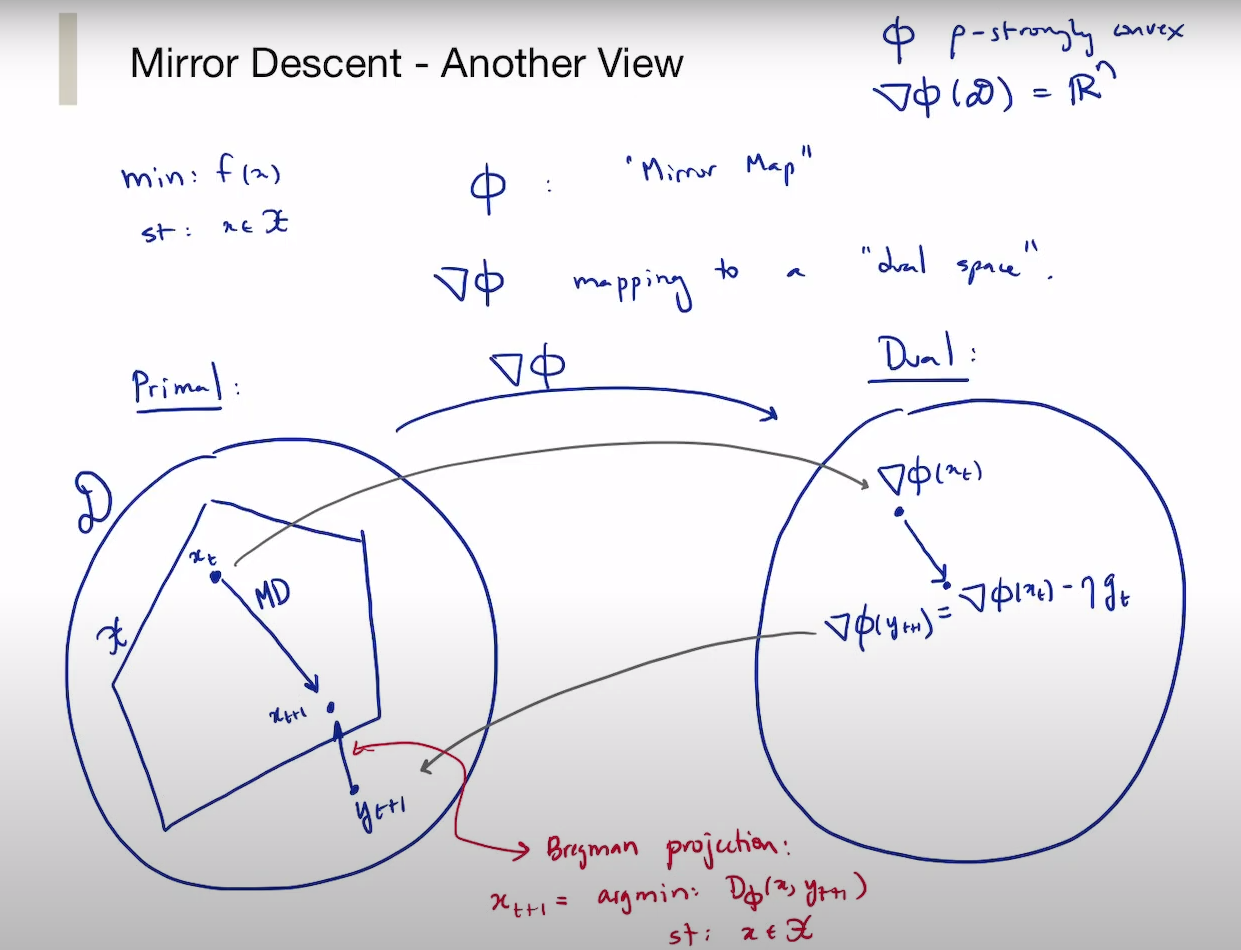 Mirror Descent - Another View
ϕ ρ-strongly convex
∇ϕ(𝒟) = ℝⁿ
min: f(x)
st: x ∈ 𝒳
ϕ : "Mirror Map"
∇ϕ mapping to a "dual space".
Primal:
∇ϕ
Dual:
𝒟
𝒳
x_t
MD
x_{t+1}
y_{t+1}
∇ϕ(x_t)
∇ϕ(y_{t+1}) = ∇ϕ(x_t) - η g_t
Bregman projection:
x_{t+1} = argmin: D_ϕ(x, y_{t+1})
st: x ∈ 𝒳